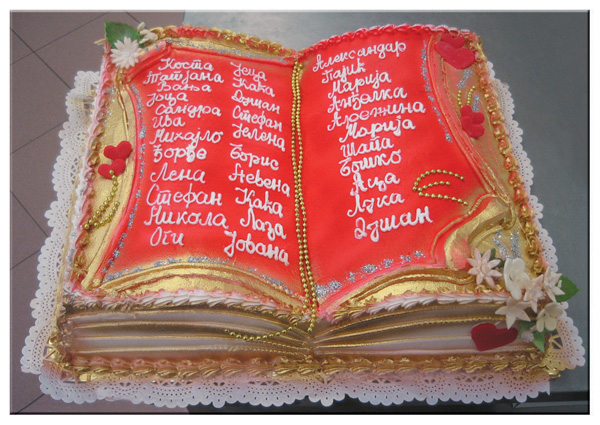 Коста
Татјана
Вања
Јоца
Сандра
Ива
Михајло
Ђорђе
Лена
Стефан
Никола
Оги
Јеца
Кака
Душан
Стефан
Јелена
Борис
Невена
Кака
Лаза
Јована
Александар
Парик
Марија
Анђелка
Марија
Шапа
Бошко
Аца
Лука
Душан